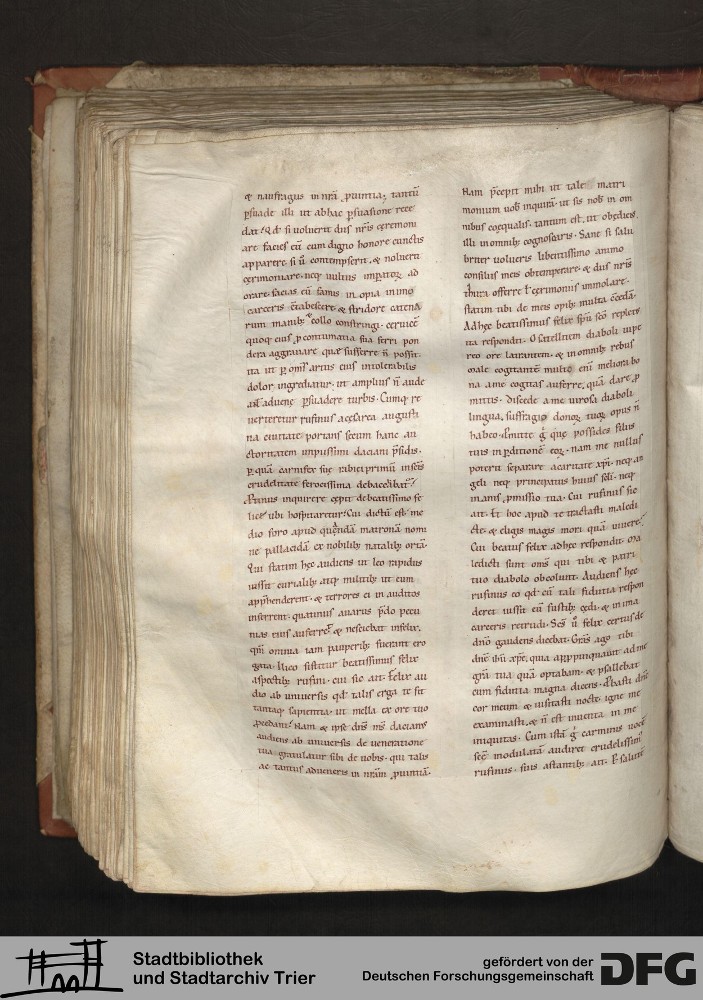 & naufragus in nrā ꝓuintia, tantū
ꝓsuade illi ut abhac ꝓsuasione rece
dat. Qd si uoluerit diis nrīs cęremoni
are facies eū cum digno honore cunctis
apparere si ū contempserit, & noluerit
cęrimoniare, neq; uultus imꝑatoꝝ ad
orare, facias eū famis in opia in imo
carceris ētabescere, & stridore catena
rum manib; & collo constringi, ceruicē
quoq; eius ꝓcontumatia sua ferri pon
dera aggrauare quę sufferre n̄ possit,
ita ut ꝑ om̄s artus eius intolerabilis
dolor ingrediatur, ut amplius n̄ aude
at aduene ꝓsuadere turbis. Cumq; re
uerteretur rufinus acęsarea augusta
na ciuitate, portans secum hanc au
ctoritatem impiissimi daciani p̄sidis,
ꝑ quā carnifex suę rabiei primū inseīs
crudelitate ferocissima debacchatur,
Protinus inquirere cępit debeatissimo fe
lice ubi hospitaretur. Cui dictū est me
dio foro apud quendā matronā nomi
ne pallacidā ex nobilib; natalib; ortā.
Qui statim hęc audiens ut leo rapidus
iussit curialib; atq; militib; ut eum
app̄henderent, & terrores ei in auditos
inferrent, quatinus auarus p̄do pecu
nias eius auferret, & nesciebat infelix,
qm̄ omnia iam pauperib; fuerant ero
gata. Ilico sistitur beatissimus felix
aspectib; rufini, cui sic ait. Felix au
dio ab uniuersis qd talis erga te sit
tantaq; sapientia, ut mella ex ore tuo
ꝓcedant. Nam & ipse dn̄s m̄s dacianus
audiens ab uniuersis de ueneratione
tua gratulatur sibi de uobis, qui talis
ac tantus adueneris in nrām ꝓuintiā.
Nam p̄cepit mihi ut tale matri
monium uob inquirā, ut sis nob in om
nibus coęqualis, tantum est, ut obędiens
illi in omnib; cognoscaris. Sane si salu
briter uolueris libentissimo animo
consiliis meis obtemperare, & diis nrīs
thura offerre ł cęrimoniis immolare,
statim tibi de meis opib; multa cęcedā.
Adhęc beatissimus felix spū scō repletus
ita respondit. O satellitem diaboli uipe
reo ore latrantem, & in omnib; rebus
male cogitantē, multo eni meliora bo
na ame cogitas auferre, quā dare ꝓ
mittis. Discede ame uirosa diaboli
lingua, suffragio donoꝝ tuoꝝ opus n̄
habeo. Dimitte g̊ quę possides filiis
tuis in ꝑditionē eoꝝ, nam me nullus
poterit separare acaritate xp̄i, neq; an
geli neq; principatus huius scłi, neq; in
manis ꝓmissio tua. Cui rufinus sic
ait. Et hoc apud te tractasti maledi
cte, & eligis magis mori quā uiuere.
Cui beatus felix adhęc respondit. Ma
ledicti sunt oms qui tibi & patri
tuo diabolo obediunt. Audiens hęc
rufinus eo qd eū tali fidutia respon
deret iussit eū fustib; cędi, & in ima
carceris retrudi. Scs ū felix certus de
dnō gaudens dicebat. Grās ago tibi
dnē ihū xpē, quia appropinquauit ad me
grā tua quā optabam, & psallebat
cum fidutia magna dicens. Probasti dnē
cor meum & uisitasti nocte, igne me
examinasti, & n̄ est inuenta in me
iniquitas. Cum istā g̊ carminis uocē
scs modulatā audiret crudelissim;
rufinus, suis astantib; ait. Psaluti
Stadtbibliothek
und Stadtarchiv Trier
gefördert von der
Deutschen Forschungsgemeinschaft
DFG